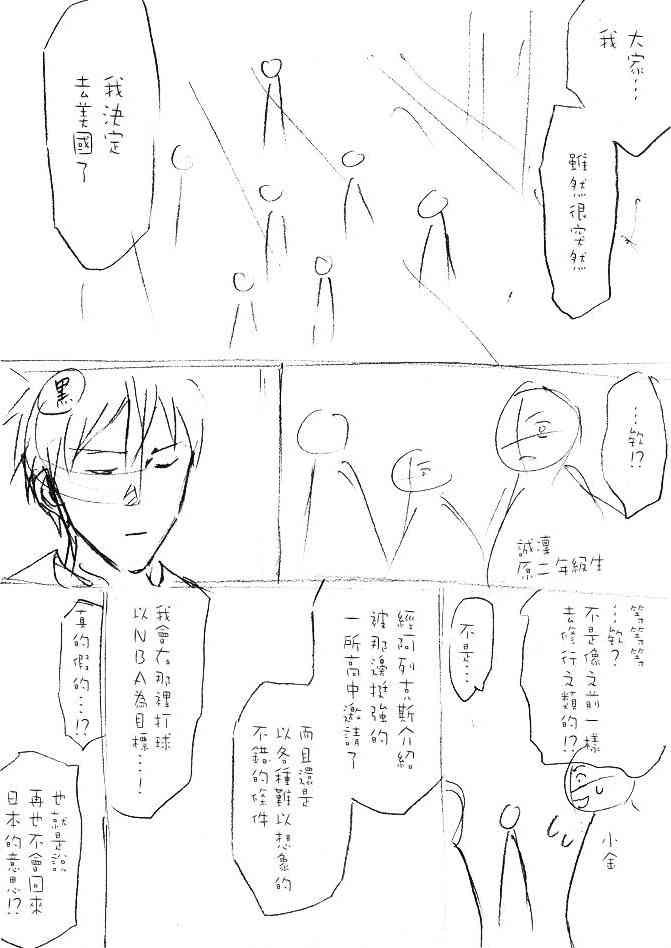 大家…
我
雖然很突然
我決定
去美國了
…欸!?
誠凜
原二年級生
黑
等等等等
…欸?
不是像之前一樣
去修行之類的!?
小金
不是…
經阿列克斯介紹
被那邊挺強的
一所高中邀請了
而且還是
以各種難以想象的
不錯的條件
我會在那裡打球
以NBA為目標…!
真的假的…!?
也就是說
再也不會回來
日本的意思!?